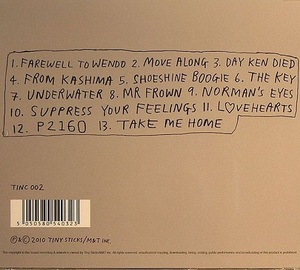 1. FAREWELL TO WENDO 2. MOVE ALONG 3. DAY KEN DIED
4. FROM KASHIMA 5. SHOESHINE BOOGIE 6. THE KEY
7. UNDERWATER 8. MR FROWN 9. NORMAN'S EYES
10. SUPPRESS YOUR FEELINGS 11. L♡VEHEARTS
12. P2160 13. TAKE ME HOME
TINC 002
5 050580 540323
℗&© 2010 TINY STICKS/M&T INC